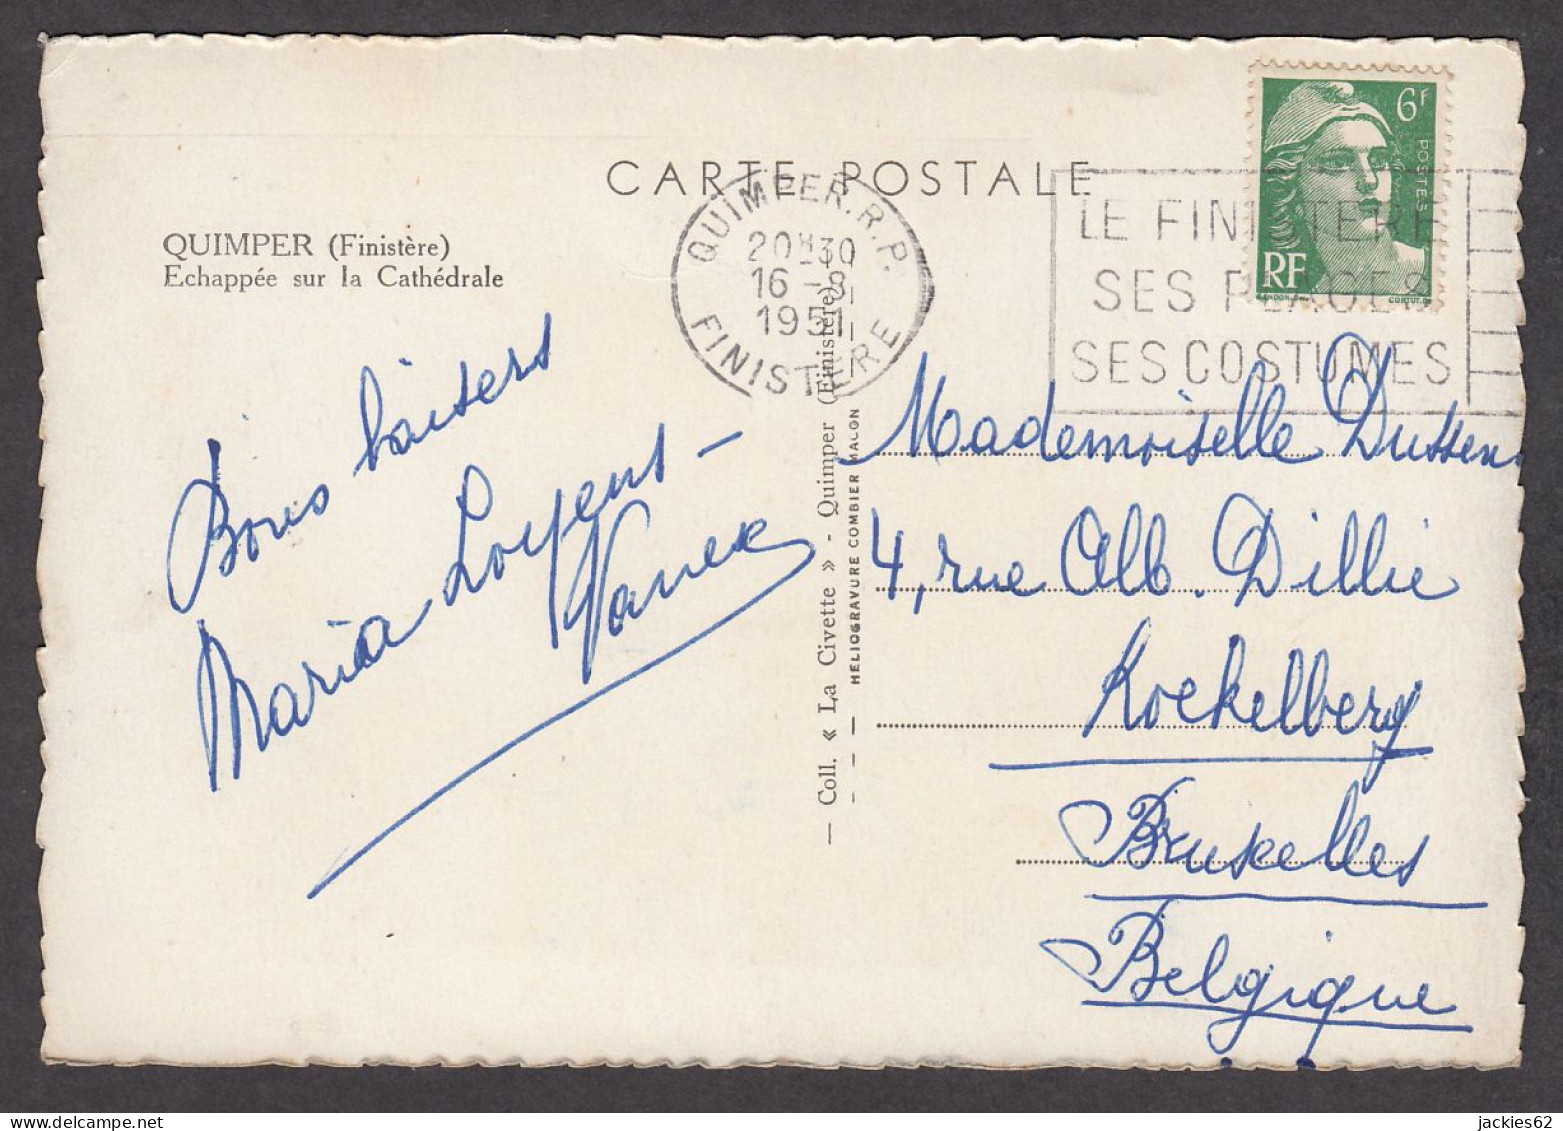 CARTE POSTALE
QUIMPER (Finistère)
Echappée sur la Cathédrale
QUIMPER.R.P.
20H30
16-8
1951
FINISTERE
LE FINISTERE
SES PLAGES
SES COSTUMES
6F
POSTES
RF
GANDON
CORTOT
Bons baisers
Maria Loyens -
— Coll. « La Civette » - Quimper (Finistère) —
HELIOGRAVURE COMBIER MACON
Mademoiselle Dussen
4, rue Alb. Dillie
Koekelberg
Bruxelles
Belgique
jackies62